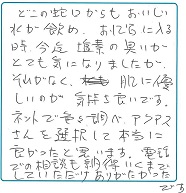 どこの蛇口からもおいしい
水が飲め、お風呂に入る
時、今迄 塩素の臭いが
とても気になりましたが、
それがなく、肌に優
しいのが 気持ち良いです。
ネットで色々調べ、アクアス
さんを選択して本当に
良かったと思います。電話
での相談も納得いくまで
していただけありがたかった
です